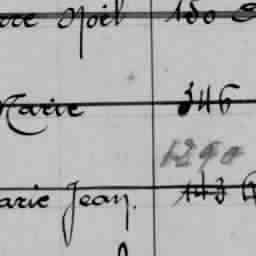 rre Noël 150
Marie 346
1290
arie Jean. 143